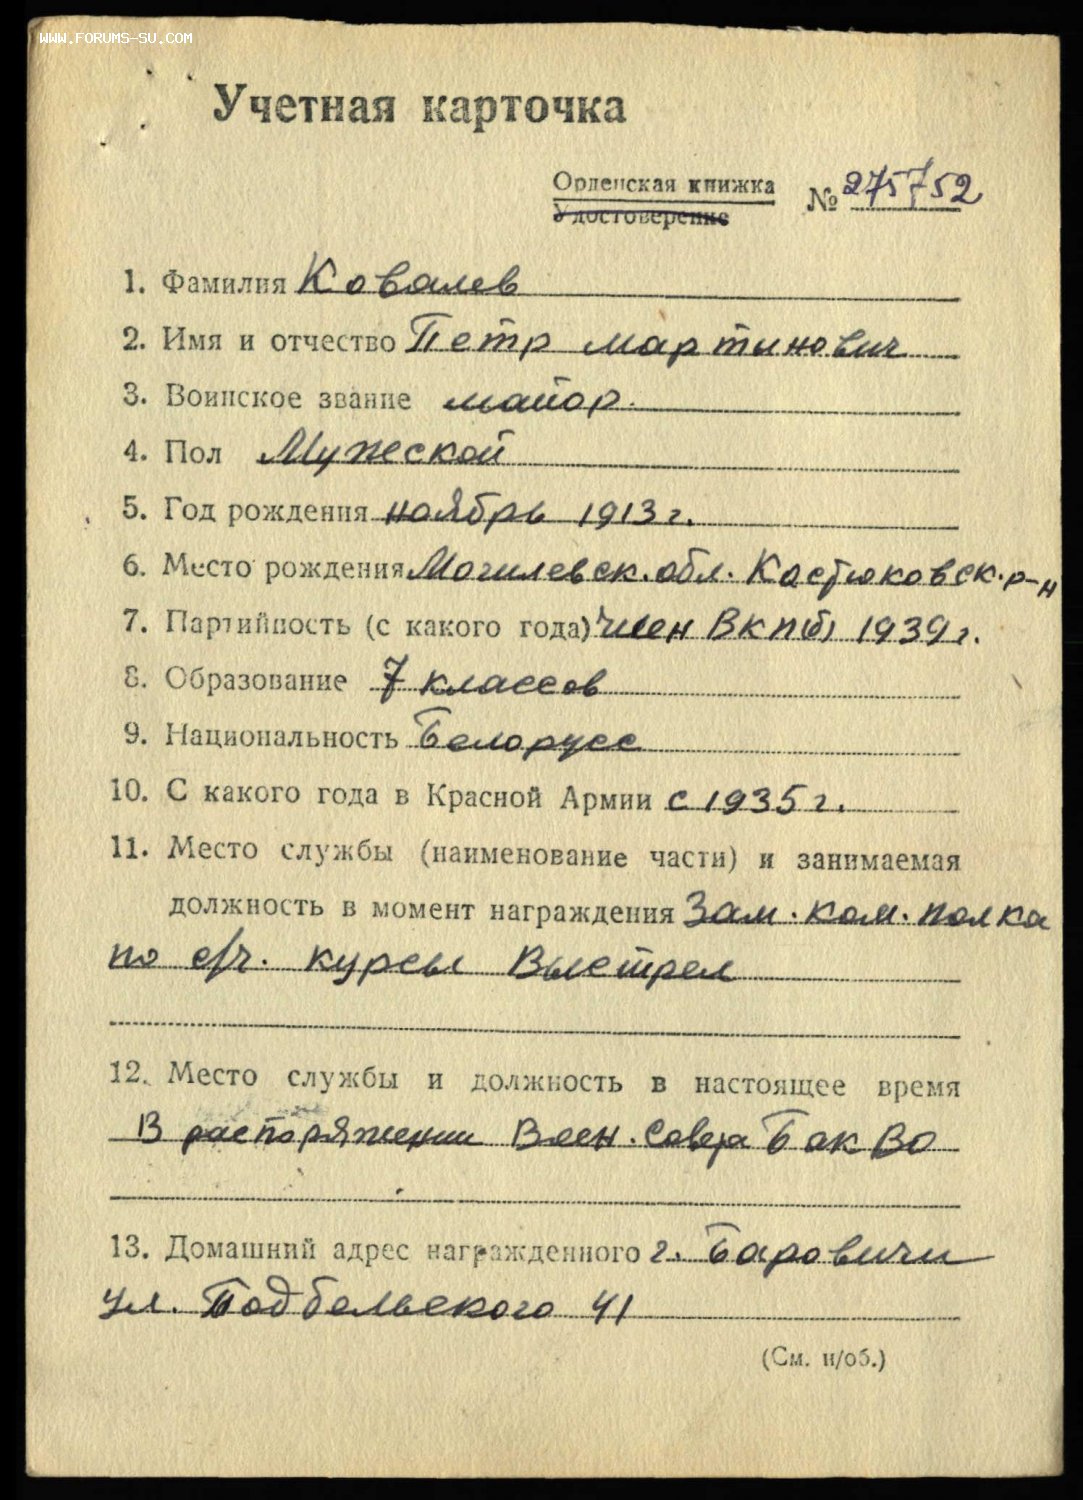 WWW.FORUMS-SU.COM
Учетная карточка
Орденская книжка
Удостоверение
№ 275752
1. Фамилия Ковалев
2. Имя и отчество Петр Мартинович
3. Воинское звание майор.
4. Пол Мужеской
5. Год рождения ноябрь 1913 г.
6. Место рождения Могилевск. обл. Костюковск. р-н
7. Партийность (с какого года) член ВКП(б) 1939 г.
8. Образование 7 классов
9. Национальность Белорусс
10. С какого года в Красной Армии с 1935 г.
11. Место службы (наименование части) и занимаемая
должность в момент награждения Зам. ком. полка
по с/ч. курсы Выстрел
12. Место службы и должность в настоящее время
В распоряжении Воен. Совета БакВО
13. Домашний адрес награжденного г. Баровичи
ул. Подбельского 41
(См. н/об.)